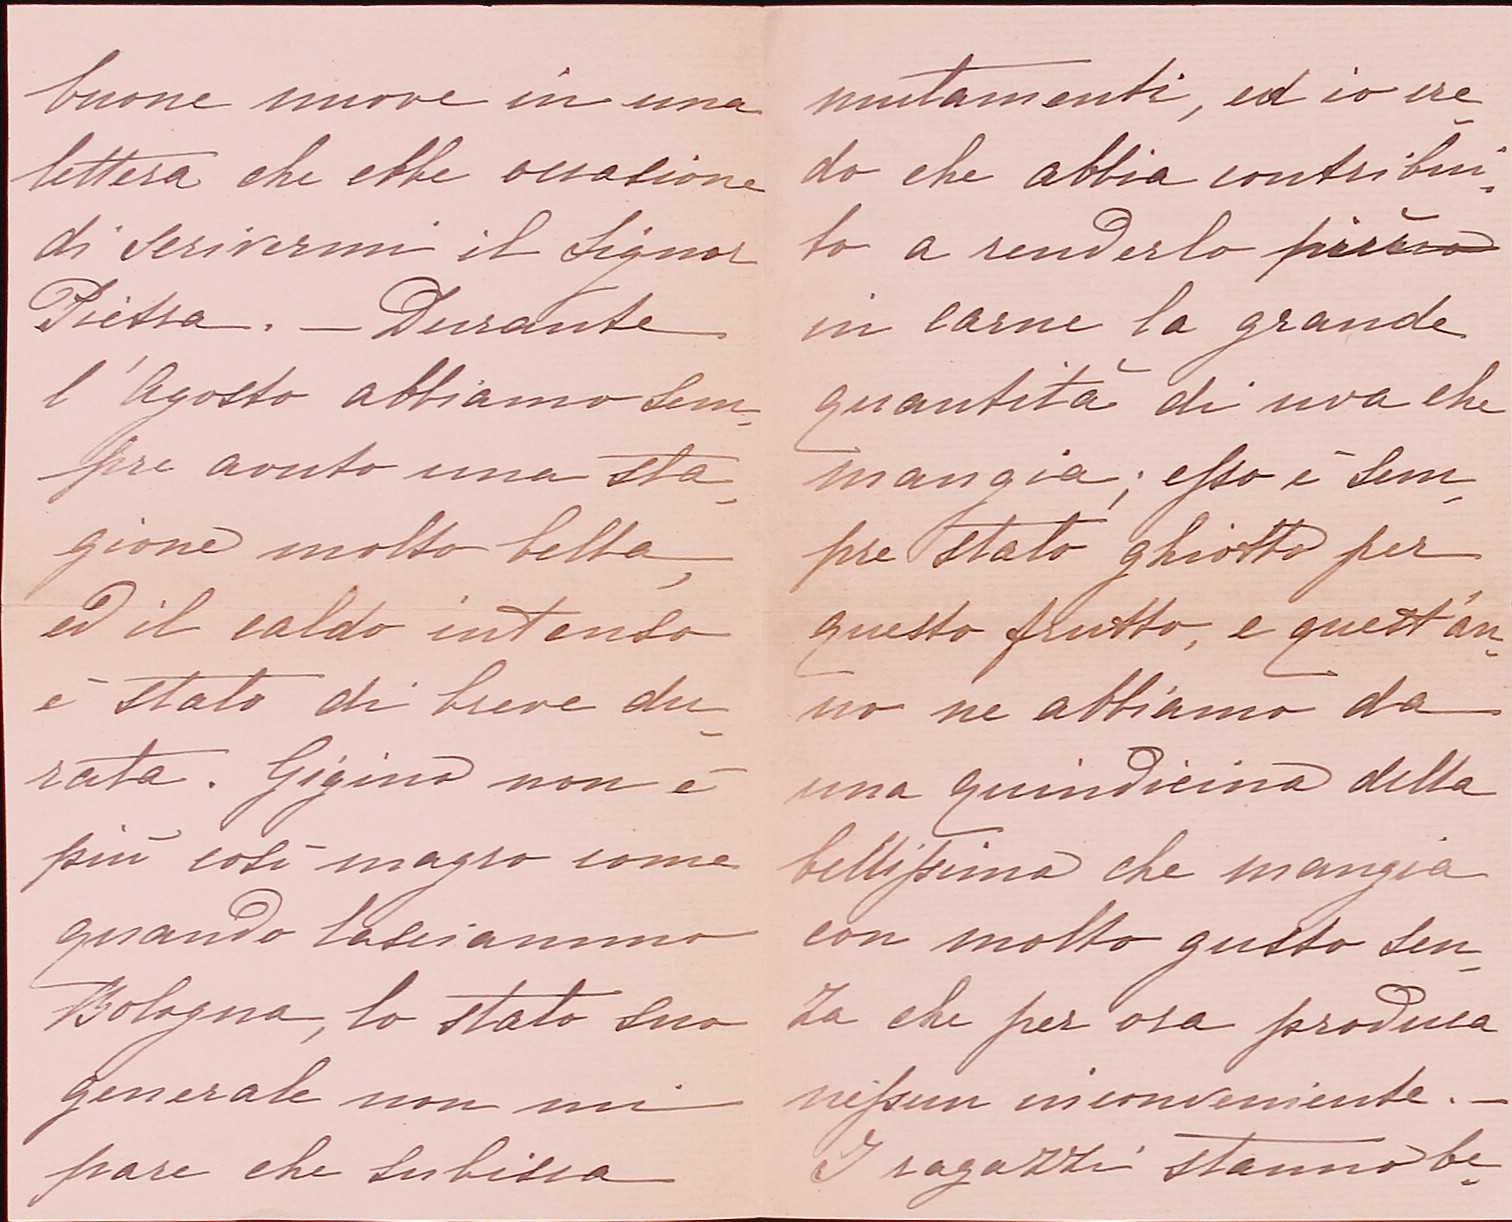 buone nuove in una
lettera che ebbe occasione
di scrivermi il Signor
Pietra. — Durante
l'Agosto abbiamo sem-
pre avuto una sta-
gione molto bella,
ed il caldo intenso
è stato di breve du-
rata. Gigino non è
più così magro come
quando lasciammo
Bologna, lo stato suo
generale non mi
pare che subisca
mutamenti, ed io cre-
do che abbia contribui-
to a renderlo
in carne la grande
quantità di uva che
mangia; esso è sem-
pre stato ghiotto per
questo frutto, e quest'an-
no ne abbiamo da
una quindicina della
bellissima che mangia
con molto gusto sen-
za che per ora produca
nessun inconveniente. —
I ragazzi stanno be-